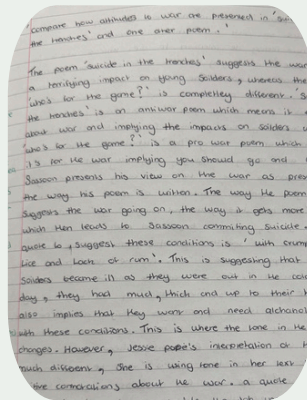 compare how attitudes to war are presented in 'suicide
the trenches' and one other poem.
The poem 'suicide in the trenches' suggests the war
a terrifying impact on young Soldiers, whereas the
'who's for the game?' is completley different. 'S
the trenches' is an antiwar poem which means it
about war and implying the impacts on soldiers
'who's for the game?' is a pro war poem which
it's for the war implying you should go and
Sassoon presents his view on the war as
the way his poem is written. The way the poem
Suggests the war going on, the way it gets more
which then leads to Sassoon commiting Suicide.
quote to, suggest these conditions is 'with
lice and lack of rum'. This is suggesting that
Soldiers become ill as they were out in the
day, they had mud, thick and up to their
also implies that they want and need
with these conditions. This is where the tone in the
changes. However, Jessie pope's interpretation of
much different, She is using tone in her text
the connotations about the war. a quote